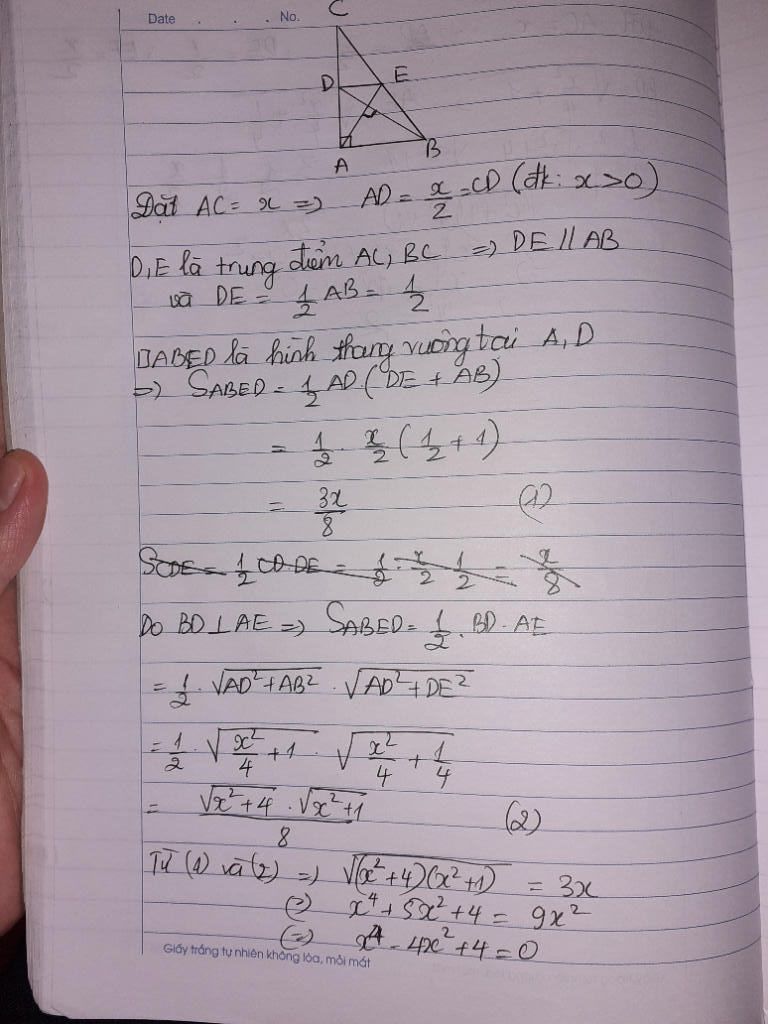 Date . . . No.
C
D E
A B
Đặt AC = x => AD = x/2 = CD (đk: x > 0)
D, E là trung điểm AC, BC => DE // AB
và DE = 1/2 AB = 1/2
□ABED là hình thang vuông tại A, D
=> SABED = 1/2 AD.(DE + AB)
= 1/2 . x/2 (1/2 + 1)
= 3x/8 (1)
SCDE = 1/2 CD.DE = 1/2 . x/2 . 1/2 = x/8
Do BD ⊥ AE => SABED = 1/2 . BD . AE
= 1/2 . √(AD² + AB²) . √(AD² + DE²)
= 1/2 . √(x²/4 + 1) . √(x²/4 + 1/4)
= √(x² + 4) . √(x² + 1) / 8 (2)
Từ (1) và (2) => √((x² + 4)(x² + 1)) = 3x
(=) x⁴ + 5x² + 4 = 9x²
(=) x⁴ - 4x² + 4 = 0
Giấy trắng tự nhiên không lóa, mỏi mắt